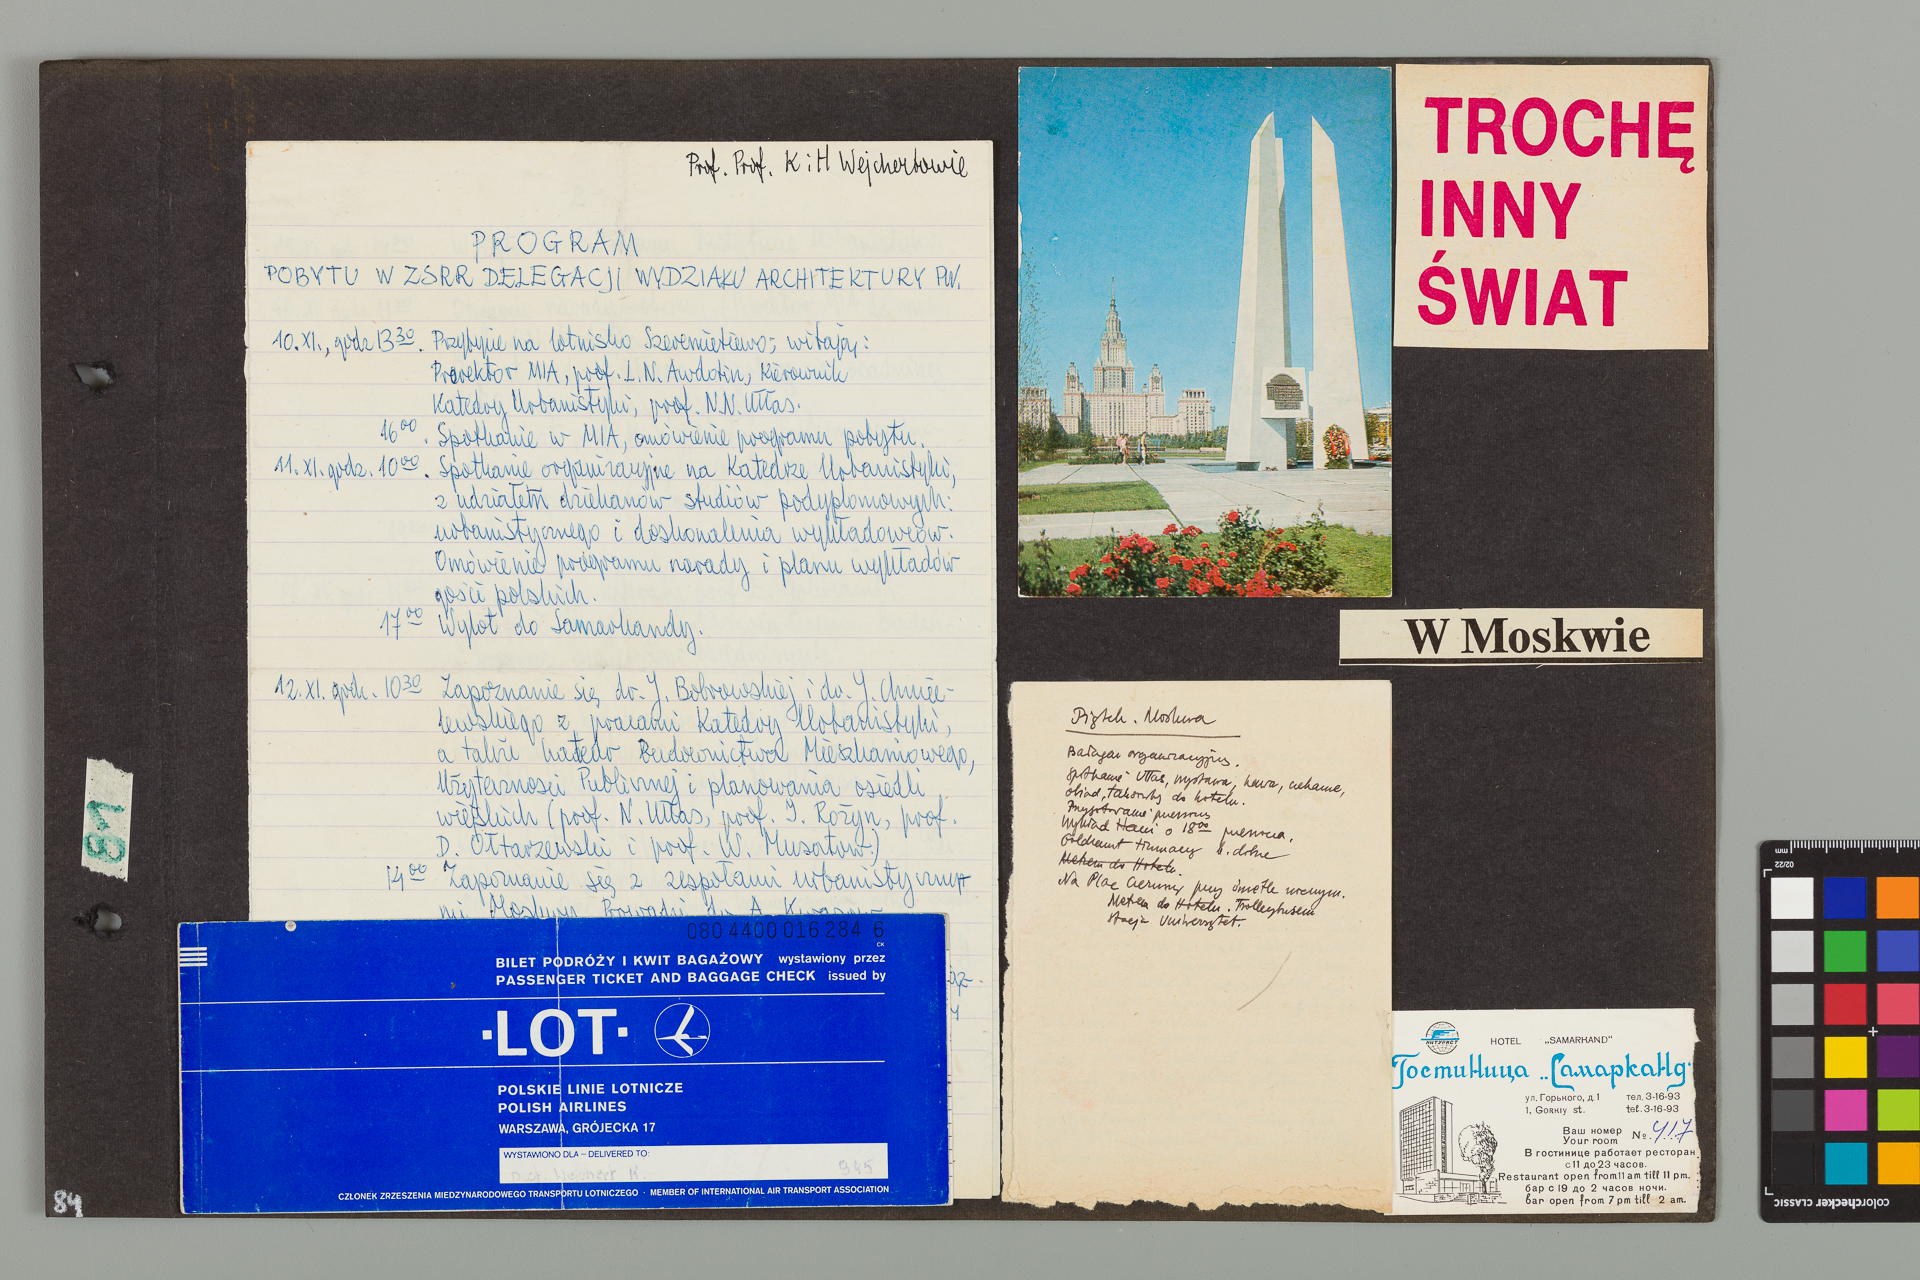 Prof. Prof. K i H Wejchertowie
PROGRAM
POBYTU W ZSRR DELEGACJI WYDZIAŁU ARCHITEKTURY PW.
10.XI., godz 13 30. Przybycie na lotnisko Szeremietiewo; witają:
Prorektor MIA, prof. L.N. Awdotin, Kierownik
Katedry Urbanistyki, prof. N.N. Ułłas.
16 00. Spotkanie w MIA, omówienie programu pobytu.
11.XI. godz. 10 00. Spotkanie organizacyjne na Katedrze Urbanistyki,
z udziałem dziekanów studiów podyplomowych:
urbanistycznego i doskonalenia wykładowców.
Omówienie programu narady i planu wykładów
gości polskich.
17 00 Wylot do Samarkandy.
12.XI. godz. 10 30 Zapoznanie się dr. J. Bobrowskiej i dr. J. Chmie-
lewskiego z pracami Katedry Urbanistyki,
a także katedr Budownictwa Mieszkaniowego,
Użyteczności Publicznej i planowania osiedli
wiejskich (prof. N. Ułłas, prof. I. Rożyn, prof.
D. Ołtarzewski i prof. W. Musatow)
14 00 Zapoznanie się z zespołami urbanistyczny-
mi Moskwy. Prowadzi dr A.
TROCHĘ
INNY
ŚWIAT
W Moskwie
Piątek. Moskwa
Bałagan organizacyjny.
Spotkanie Ułłas, wystawa, kawa, czekanie,
obiad, taksówką do hotelu.
Przygotowanie
Wykład Hani o 18 00
tłumaczy b. dobrze
Metrem do Hotelu.
Na Plac Czerwony przy świetle nocnym.
Metrem do Hotelu. Trolleybusem
stacja Uniwersytet.
080 4400 016 284 6
CK
BILET PODRÓŻY I KWIT BAGAŻOWY wystawiony przez
PASSENGER TICKET AND BAGGAGE CHECK issued by
·LOT·
POLSKIE LINIE LOTNICZE
POLISH AIRLINES
WARSZAWA, GRÓJECKA 17
WYSTAWIONO DLA – DELIVERED TO:
945
CZŁONEK ZRZESZENIA MIEDZYNARODOWEGO TRANSPORTU LOTNICZEGO · MEMBER OF INTERNATIONAL AIR TRANSPORT ASSOCIATION
ИНТУРИСТ
HOTEL „SAMARHAND"
Гостиница „Самарканд"
ул. Горького, д.1 тел. 3-16-93
1, Gorkiy st. tel. 3-16-93
Ваш номер
Your room № 417
В гостинице работает ресторан
с 11 до 23 часов.
Restaurant open from 11 am till 11 pm.
бар с 19 до 2 часов ночи.
bar open from 7 pm till 2 am.
81
84
mm
02/22
colorchecker CLASSIC